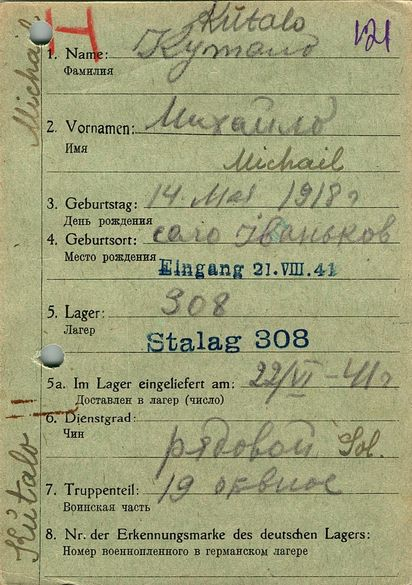 Kŭtalo
H
121
1. Name: Кутало
Фамилия
Michail
2. Vornamen: Михайло
Имя
Michail
3. Geburtstag: 14. Мая 1918 г
День рождения
4. Geburtsort: село Іваньков
Место рождения
Eingang 21. VIII. 41
5. Lager: 308
Лагер
Stalag 308
5a. Im Lager eingeliefert am: 22/VI - 41 г
Доставлен в лагер (число)
6. Dienstgrad:
Чин
рядовой Sol.
7. Truppenteil: 19
Воинская часть
Kŭtalo
8. Nr. der Erkennungsmarke des deutschen Lagers:
Номер военнопленного в германском лагере